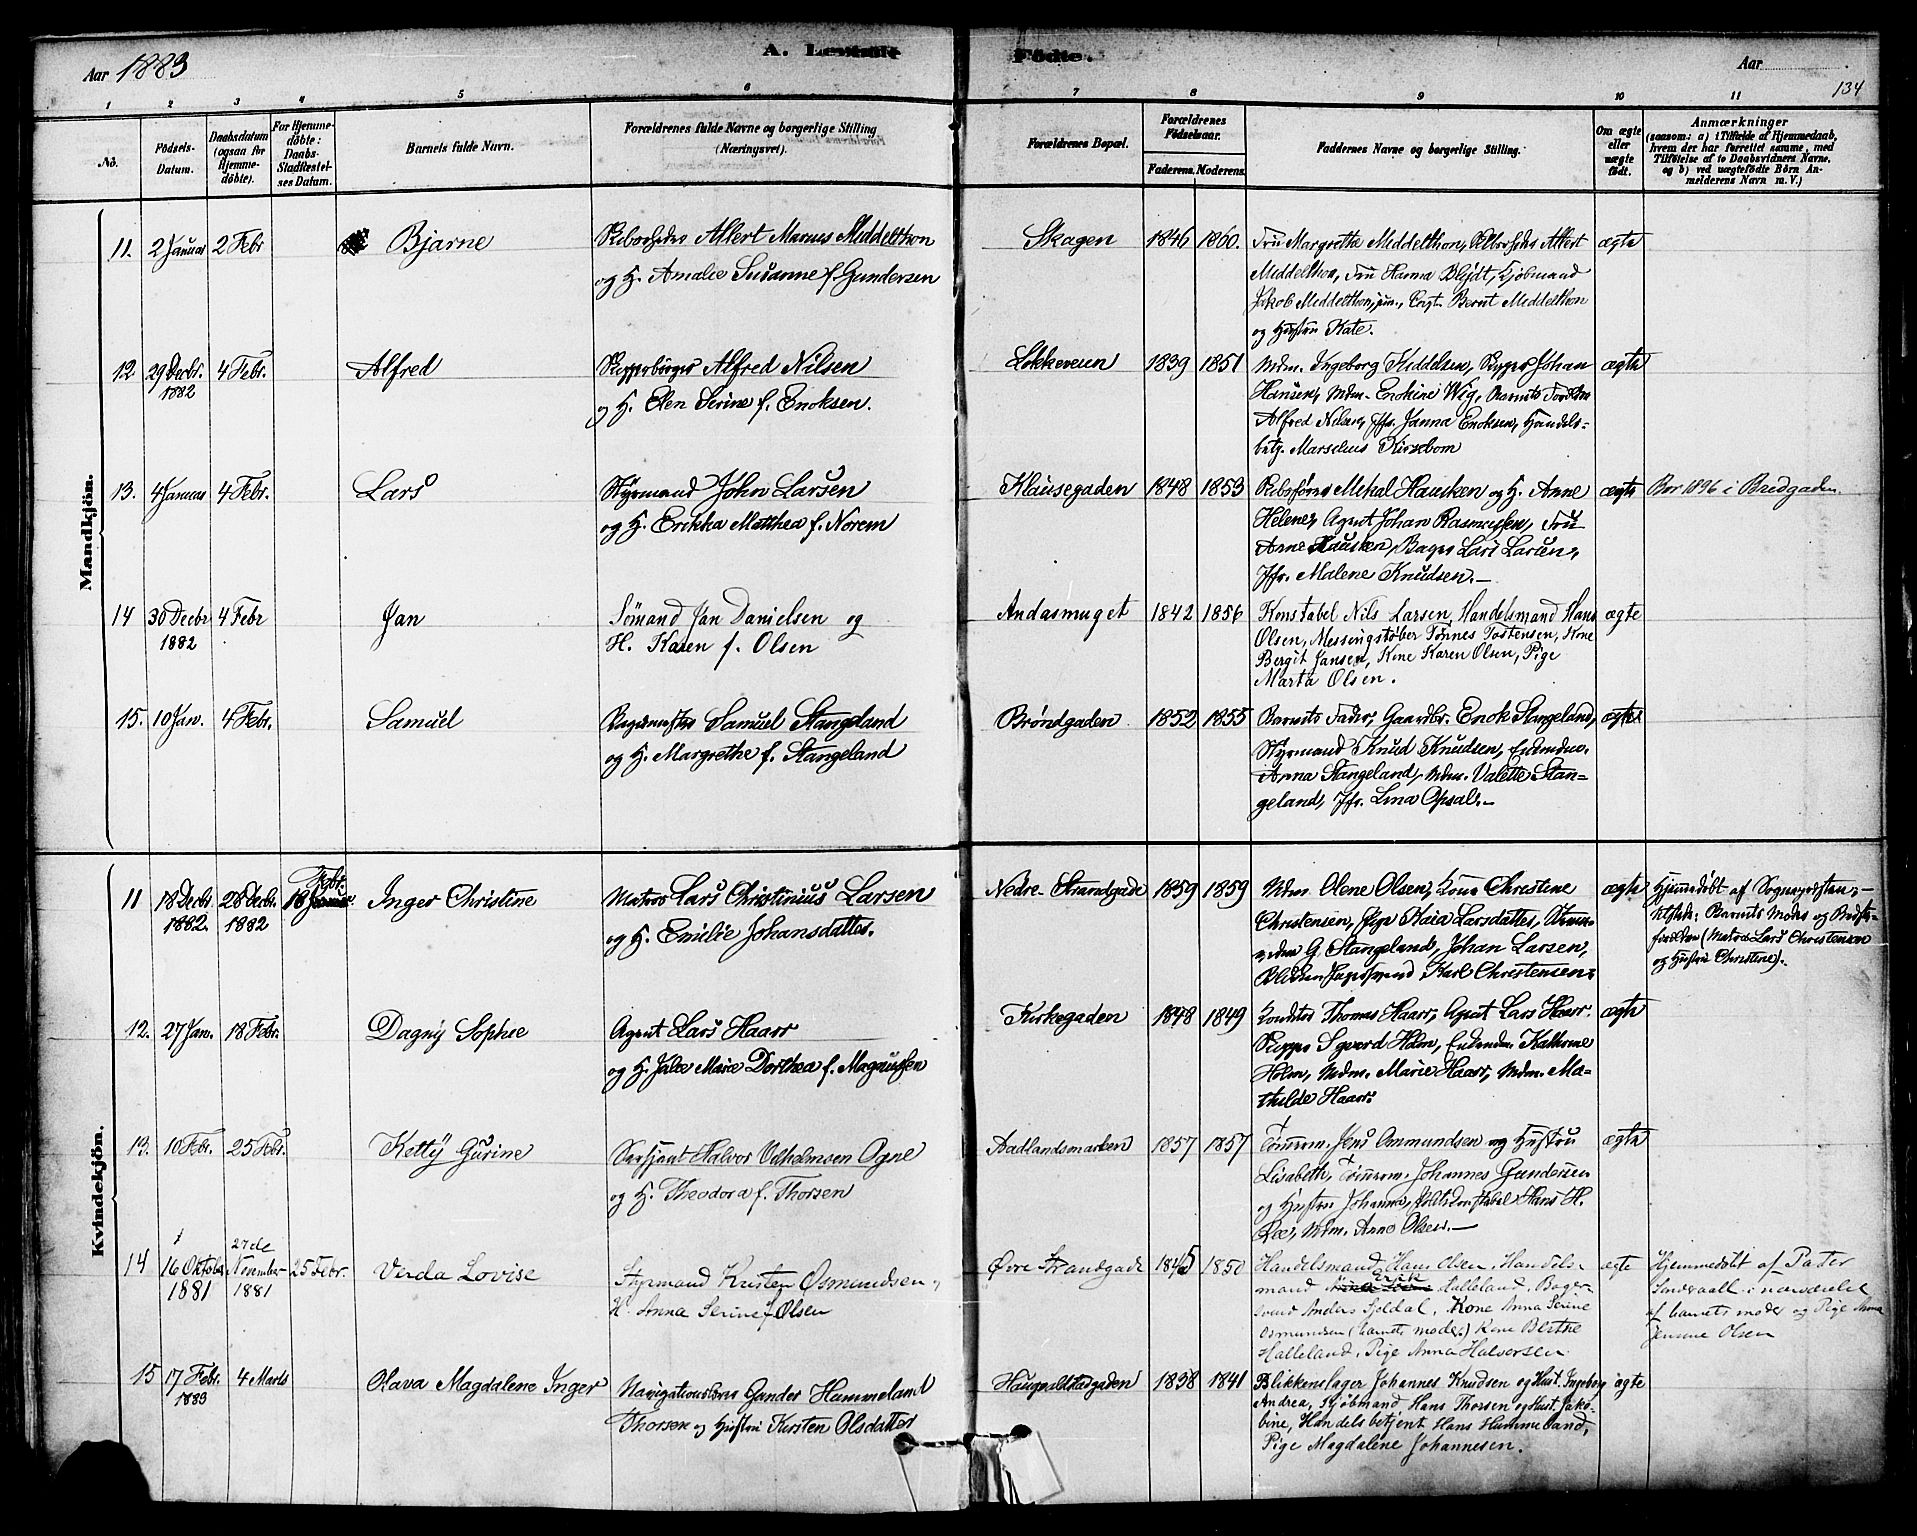 Aar 1883
A. Levende Födte.
Aar
134
1 2 3 4 5 6 7 8 9 10 11
No.
Födsels-Datum.
Daabsdatum (ogsaa for Hjemmedöbte).
For Hjemmedöbte: Daabs-Stadfæstelses Datum.
Barnets fulde Navn.
Forældrenes fulde Navne og borgerlige Stilling (Næringsvei).
Forældrenes Bopæl.
Forældrenes Födselsaar.
Faderens. Moderens.
Faddernes Navne og borgerlige Stilling.
Om ægte eller uægte födt.
Anmærkninger
(saasom: a) i Tilfælde af Hjemmedaab, hvem der har forrettet samme, med Tilföielse af to Daabsvidners Navne, og b) ved uægtefödte Börn Anmelderens Navn m. V.)
Mandkjön.
11. 2 Januar 2 Febr Bjarne
Albert Marius Middelthon
og H. Amalie Susanne f. Gundersen
Skagen 1846 1860.
Fru Margrethe Middelthon, Albert
Middelthon, Fru Hanna Blÿdt, Kjøbmand
Jakob Middelthon, jun., Bernt Middelthon
og Hustru Kate.
ægte
12 29 Decbr. 1882 4 Febr. Alfred
Alfred Nilsen
og H. Elen Serine f. Enoksen.
Løkkeveien 1839 1851
Mdm. Ingeborg Kiddelsen, Johan
Hansen, Mdm. Enokine Wig, Barnets
Alfred Nilsen, Jfr. Janna Enoksen, Handels-
betj. Marselius Kirsebom
ægte
13. 4 Januar 4 Febr. Lars
Styrmand John Larsen
og H. Erikka Matthea f. Norem
Klausegaden 1848 1853
Mikal Hausken og H. Anne
Helene, Agent Johan Rasmussen, Fru
Anne Hausken, Bager Lars Larsen,
Jfr. Malene Knudsen.—
ægte
Bor 1896 i Bredgaden.
14 30 Decbr 1882 4 Febr Jan
Sömand Jan Danielsen og
H. Karen f. Olsen
Andasmuget 1842 1856
Konstabel Nils Larsen, Handelsmand Hans
Olsen, Messingstøber Tönnes Tostensen, Kone
Bergit Jansen, Kone Karen Olsen, Pige
Marta Olsen.
ægte
15. 10 Jan. 4 Febr. Samuel
Bagermester Samuel Stangeland
og H. Margrethe f. Stangeland
Brøndgaden 1852 1855
Barnets Fader, Gaardbr. Enok Stangeland,
Styrmand Knud Knudsen, Enkemdm.
Anna Stangeland, Mdm. Valette Stan-
geland, Jfr. Lina Opsal.—
ægte
Kvindekjön.
11 18 Decbr. 1882. 28 Decbr. 1882 18 Febr. Inger Christine
Matros Lars Christinius Larsen
og H. Emilie Johansdatter.
Nedre Strandgade 1859 1859
Mdm. Olene Olsen, Kone Christine
Christensen, Pige Kaia Larsdatter,
G. Stangeland, Johan Larsen,
Karl Christensen.
ægte
Hjemmedøbt af Sognepresten;
tilstede: Barnets Moder og Bedste-
forældre (Matros Lars Christensen
og Hustru Christine).
12. 27 Jan. 18 Febr. Dagny Sophie
Agent Lars Haarr
og H. Marie Dorthea f. Magnussen
Kirkegaden 1848 1849
Konditor Thomas Haarr, Agent Lars Haarr
Skipper Sigvard Holm, Enkemdm. Kathrine
Holm, Mdm. Marie Haarr, Mdm. Ma-
thilde Haarr.
ægte
13. 10 Febr. 25 Febr. Ketty Gurine
Sersjant Halvor Velhelmsen Ogne
og H. Theodora f. Thorsen
Aadlandsmarken 1857 1857
Tömrm. Jens Ommundsen og Hustru
Lisabeth, Tömrm. Johannes Gundersen
og Hustru Johanna, Politikonstabel Hans H.
Roe, Mdm. Anne Olsen.—
ægte
14 16 Oktober 1881 27de November 1881 25 Febr. Verda Lovise
Styrmand Kristen Osmundsen,
H. Anna Serine f. Olsen
Øvre Strandgade 1845 1850
Handelsmand Hans Olsen, Handels-
mand Erik Halleland, Bager-
svend Anders Sjeldal, Kone Anna Serine
Osmundsen (barnets moder.) Kone Berthe
Halleland, Pige Anna Halvorsen
ægte
Hjemmedøbt af Pater
i nærværelse
af barnets moder og Pige Anna
Jensine Olsen
15 17 Febr. 1883 4 Marts Olava Magdalene Inger
Navigationslærer Gunder Hammeland
Thorsen og Hustru Kirsten Olsdatter
Haugvaldstadgaden 1838 1841
Blikkenslager Johannes Knudsen og Hust. Ingeborg
Andrea, Kjøbmand Hans Thorsen og Hust. Jako-
bine, Handelsbetjent Hans Hammeland,
Pige Magdalene Johannesen.
ægte